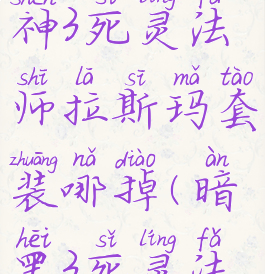 shén sǐ líng fǎ
神3死灵法
shī lā sī mǎ tào
师拉斯玛套
zhuāng nǎ diào àn
装哪掉(暗
hēi sǐ líng fǎ
黑3死灵法